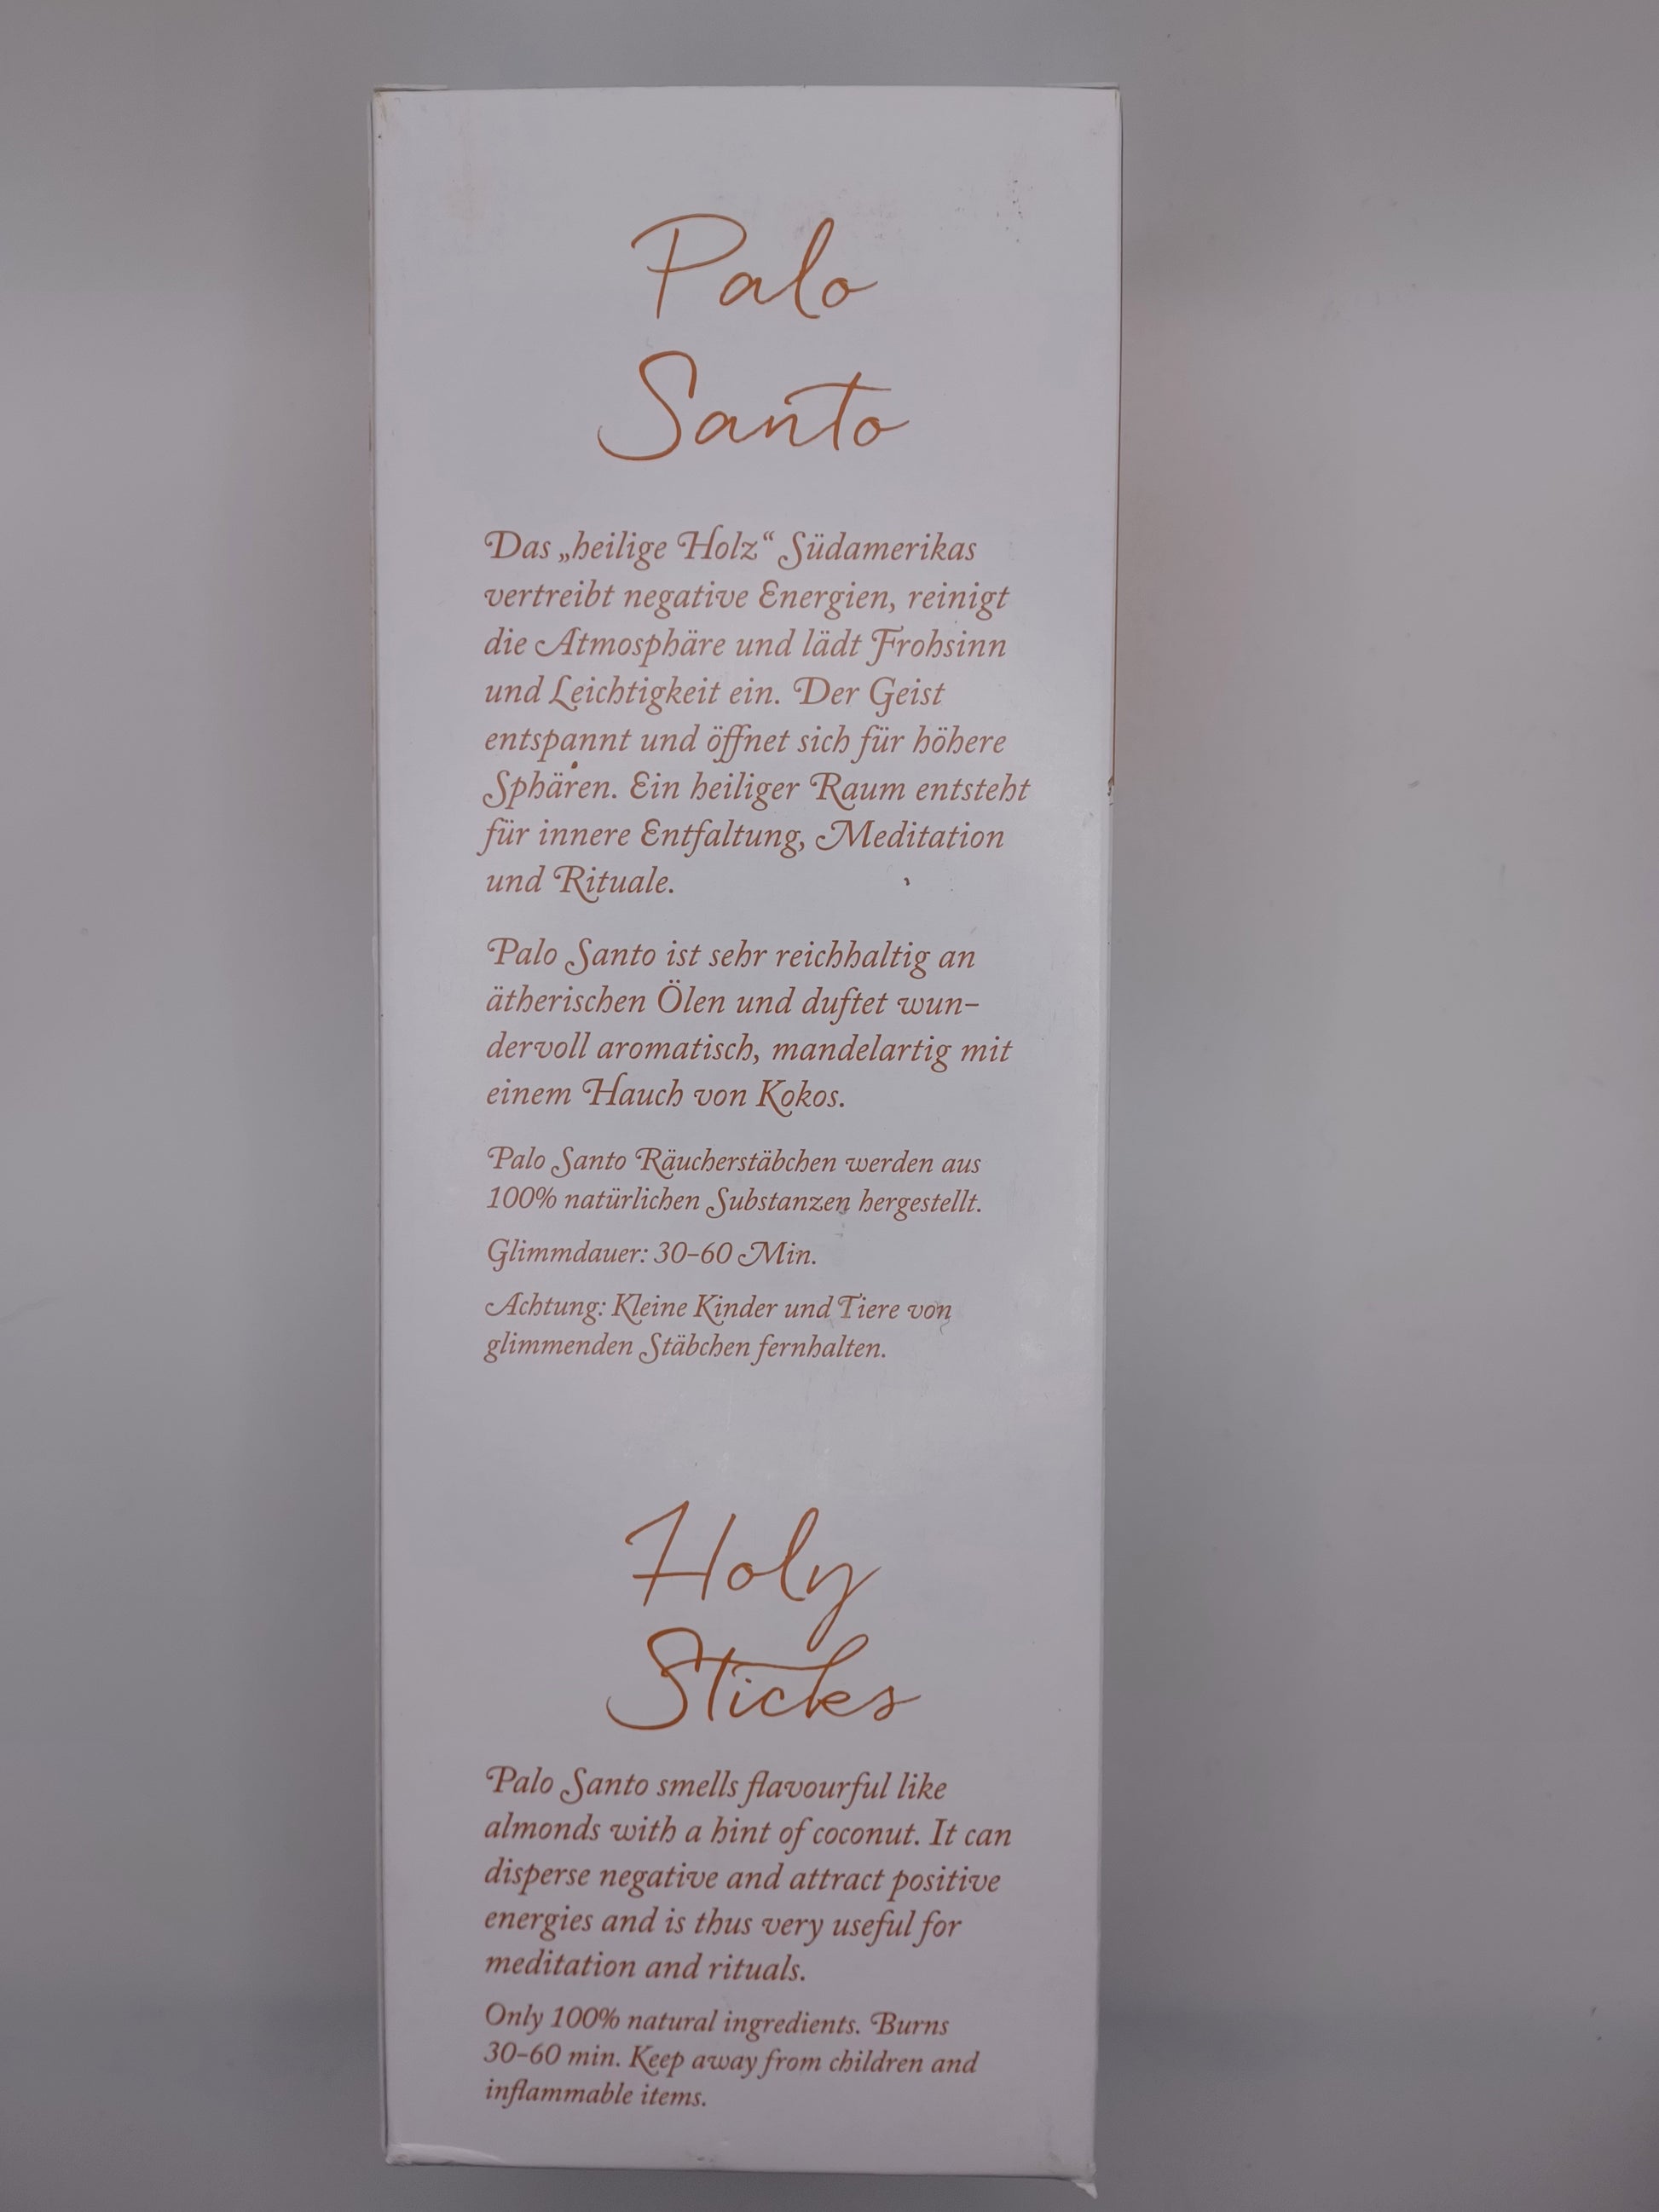 Palo
Santo
Das „heilige Holz“ Südamerikas
vertreibt negative Energien, reinigt
die Atmosphäre und lädt Frohsinn
und Leichtigkeit ein. Der Geist
entspannt und öffnet sich für höhere
Sphären. Ein heiliger Raum entsteht
für innere Entfaltung, Meditation
und Rituale.
Palo Santo ist sehr reichhaltig an
ätherischen Ölen und duftet wun-
dervoll aromatisch, mandelartig mit
einem Hauch von Kokos.
Palo Santo Räucherstäbchen werden aus
100% natürlichen Substanzen hergestellt.
Glimmdauer: 30-60 Min.
Achtung: Kleine Kinder und Tiere von
glimmenden Stäbchen fernhalten.
Holy
Sticks
Palo Santo smells flavourful like
almonds with a hint of coconut. It can
disperse negative and attract positive
energies and is thus very useful for
meditation and rituals.
Only 100% natural ingredients. Burns
30-60 min. Keep away from children and
inflammable items.